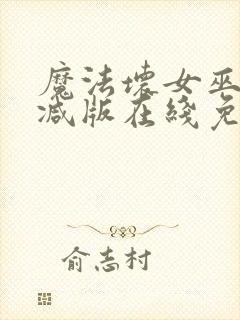 魔法壞女巫
减版在綫免
俞志村